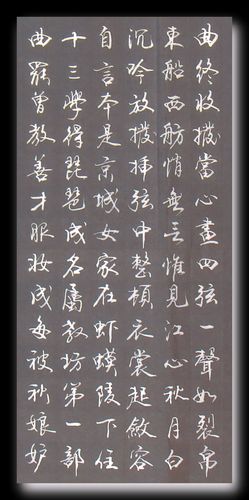 曲終收撥當心畫四弦一聲如裂帛
東船西舫悄無言惟見江心秋月白
沉吟放撥插弦中整頓衣裳起斂容
自言本是京城女家在虾蟆陵下住
十三學得琵琶成名屬教坊第一部
曲罷曾教善才服妝成每被秋娘妒